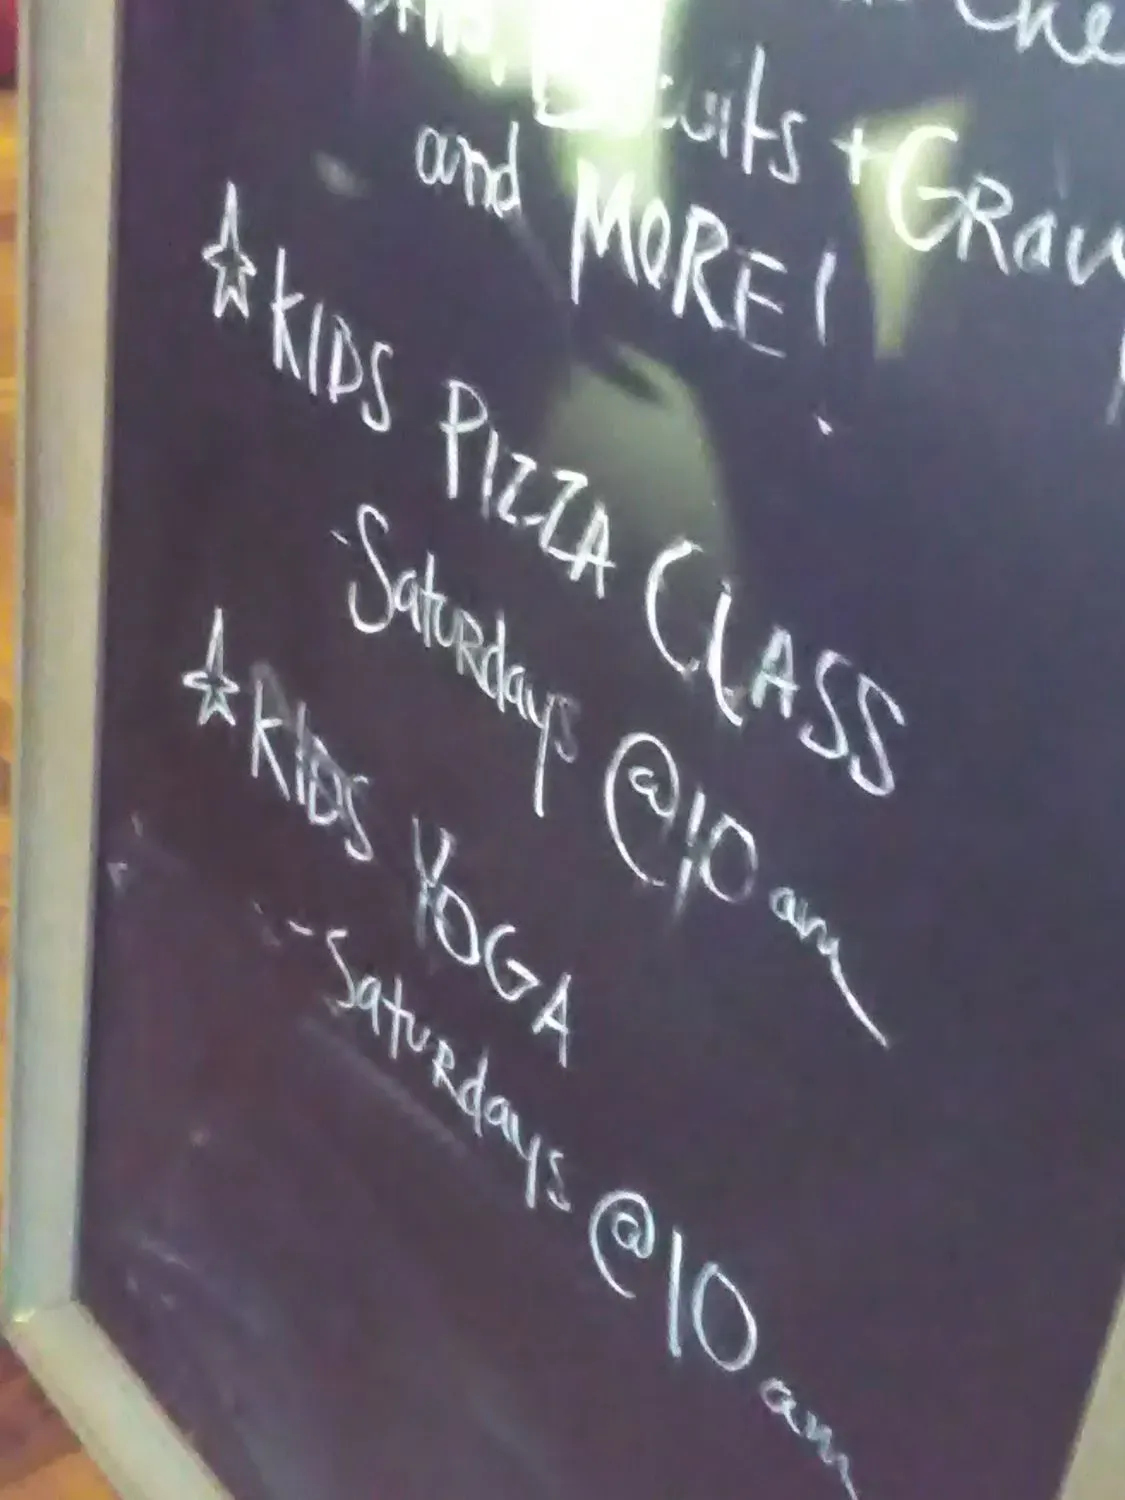 + Grav
and MORE!
☆ KIDS PIZZA CLASS
- Saturdays @ 10 am
☆ KIDS YOGA
- Saturdays @ 10 am